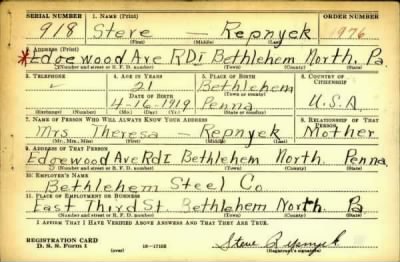 SERIAL NUMBER 1. NAME (Print) ORDER NUMBER
918 Steve — Repnyek 1976
(First) (Middle) (Last)
2. ADDRESS (Print)
*Edgewood Ave RDI Bethlehem North. Pa.
(Number and street or R. F. D. number) (Town) (County) (State)
3. TELEPHONE 4. AGE IN YEARS 5. PLACE OF BIRTH 6. COUNTRY OF CITIZENSHIP
✓ 21 Bethlehem
DATE OF BIRTH (Town or county)
4-16-1919 Penna U.S.A.
(Mo.) (Day) (Yr.) (State or country)
7. NAME OF PERSON WHO WILL ALWAYS KNOW YOUR ADDRESS 8. RELATIONSHIP OF THAT PERSON
Mrs Theresa — Repnyek Mother
(Mr., Mrs., Miss) (First) (Middle) (Last)
9. ADDRESS OF THAT PERSON
Edgewood Ave RDI Bethlehem North. Penna
(Number and street or R. F. D. number) (Town) (County) (State)
10. EMPLOYER'S NAME
Bethlehem Steel Co
11. PLACE OF EMPLOYMENT OR BUSINESS
East Third St. Bethlehem North. Pa
(Number and street or R. F. D. number) (Town) (County) (State)
I AFFIRM THAT I HAVE VERIFIED ABOVE ANSWERS AND THAT THEY ARE TRUE.
REGISTRATION CARD
D. S. S. Form 1 (over) 16—17105 Steve Repnyek
(Registrant's signature)